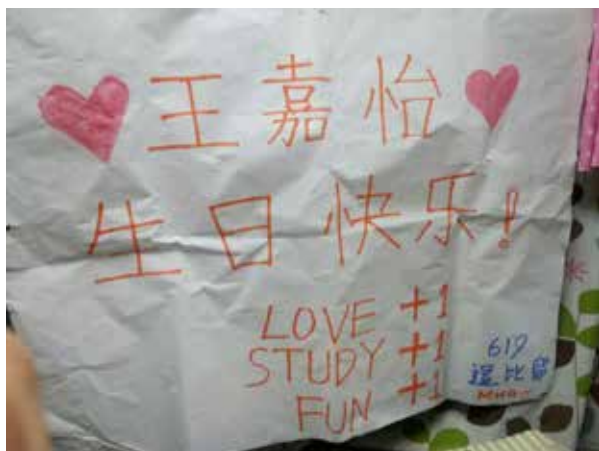 王嘉怡
生日快乐!
LOVE +1
STUDY +1
FUN +1
619
逗比留
MUA~